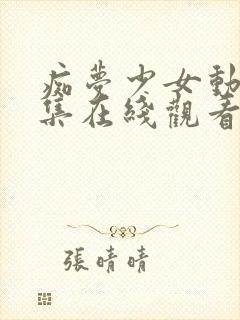 痴夢少女動
集在綫觀看
張晴晴